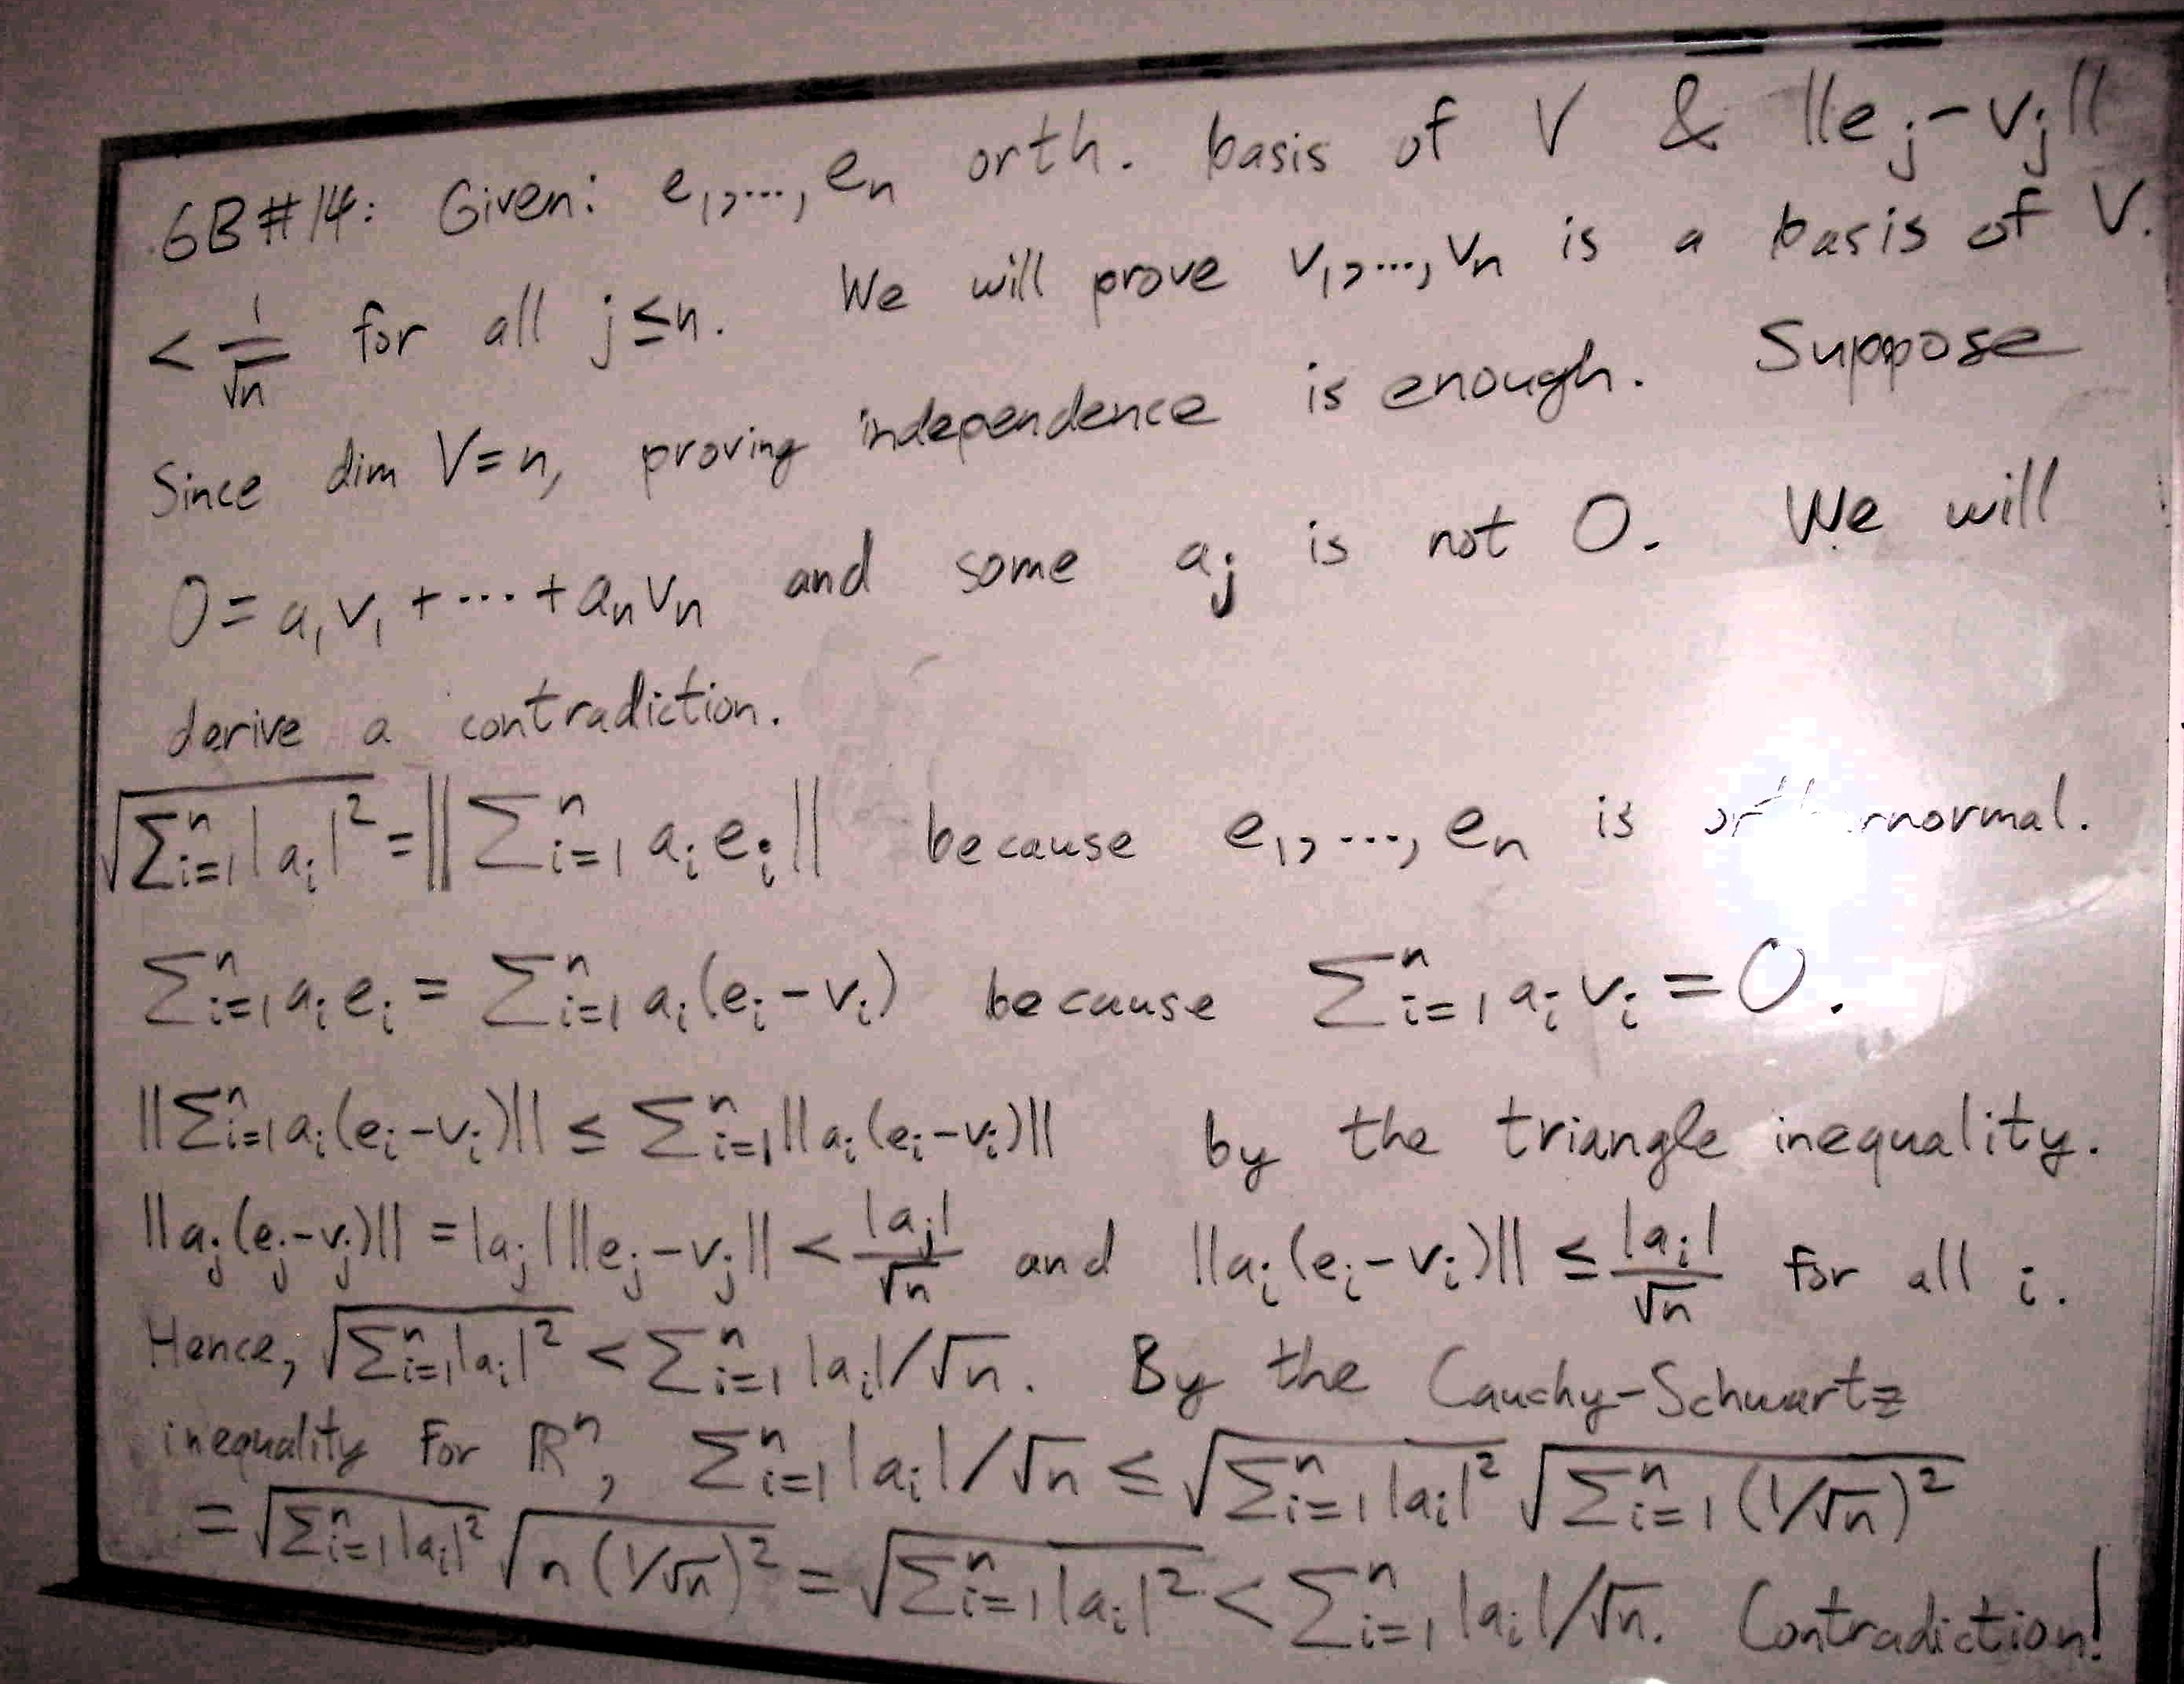 6B#14: Given: e₁,...,eₙ orth. basis of V & ||eⱼ-vⱼ||
< 1/√n for all j≤n. We will prove v₁,...,vₙ is a basis of V.
Since dim V=n, proving independence is enough. Suppose
0=a₁v₁+···+aₙvₙ and some aⱼ is not 0. We will
derive a contradiction.
√(∑ⁿᵢ₌₁|aᵢ|²)=||∑ⁿᵢ₌₁aᵢeᵢ|| because e₁,...,eₙ is normal.
∑ⁿᵢ₌₁aᵢeᵢ=∑ⁿᵢ₌₁aᵢ(eᵢ-vᵢ) because ∑ⁿᵢ₌₁aᵢvᵢ=0.
||∑ⁿᵢ₌₁aᵢ(eᵢ-vᵢ)||≤∑ⁿᵢ₌₁||aᵢ(eᵢ-vᵢ)|| by the triangle inequality.
||aⱼ(eⱼ-vⱼ)||=|aⱼ|||eⱼ-vⱼ||<|aⱼ|/√n and ||aᵢ(eᵢ-vᵢ)||≤|aᵢ|/√n for all i.
Hence, √(∑ⁿᵢ₌₁|aᵢ|²)<∑ⁿᵢ₌₁|aᵢ|/√n. By the Cauchy-Schwartz
inequality for ℝⁿ, ∑ⁿᵢ₌₁|aᵢ|/√n≤√(∑ⁿᵢ₌₁|aᵢ|²)√(∑ⁿᵢ₌₁(1/√n)²)
=√(∑ⁿᵢ₌₁|aᵢ|²)√(n(1/√n)²)=√(∑ⁿᵢ₌₁|aᵢ|²)<∑ⁿᵢ₌₁|aᵢ|/√n. Contradiction!